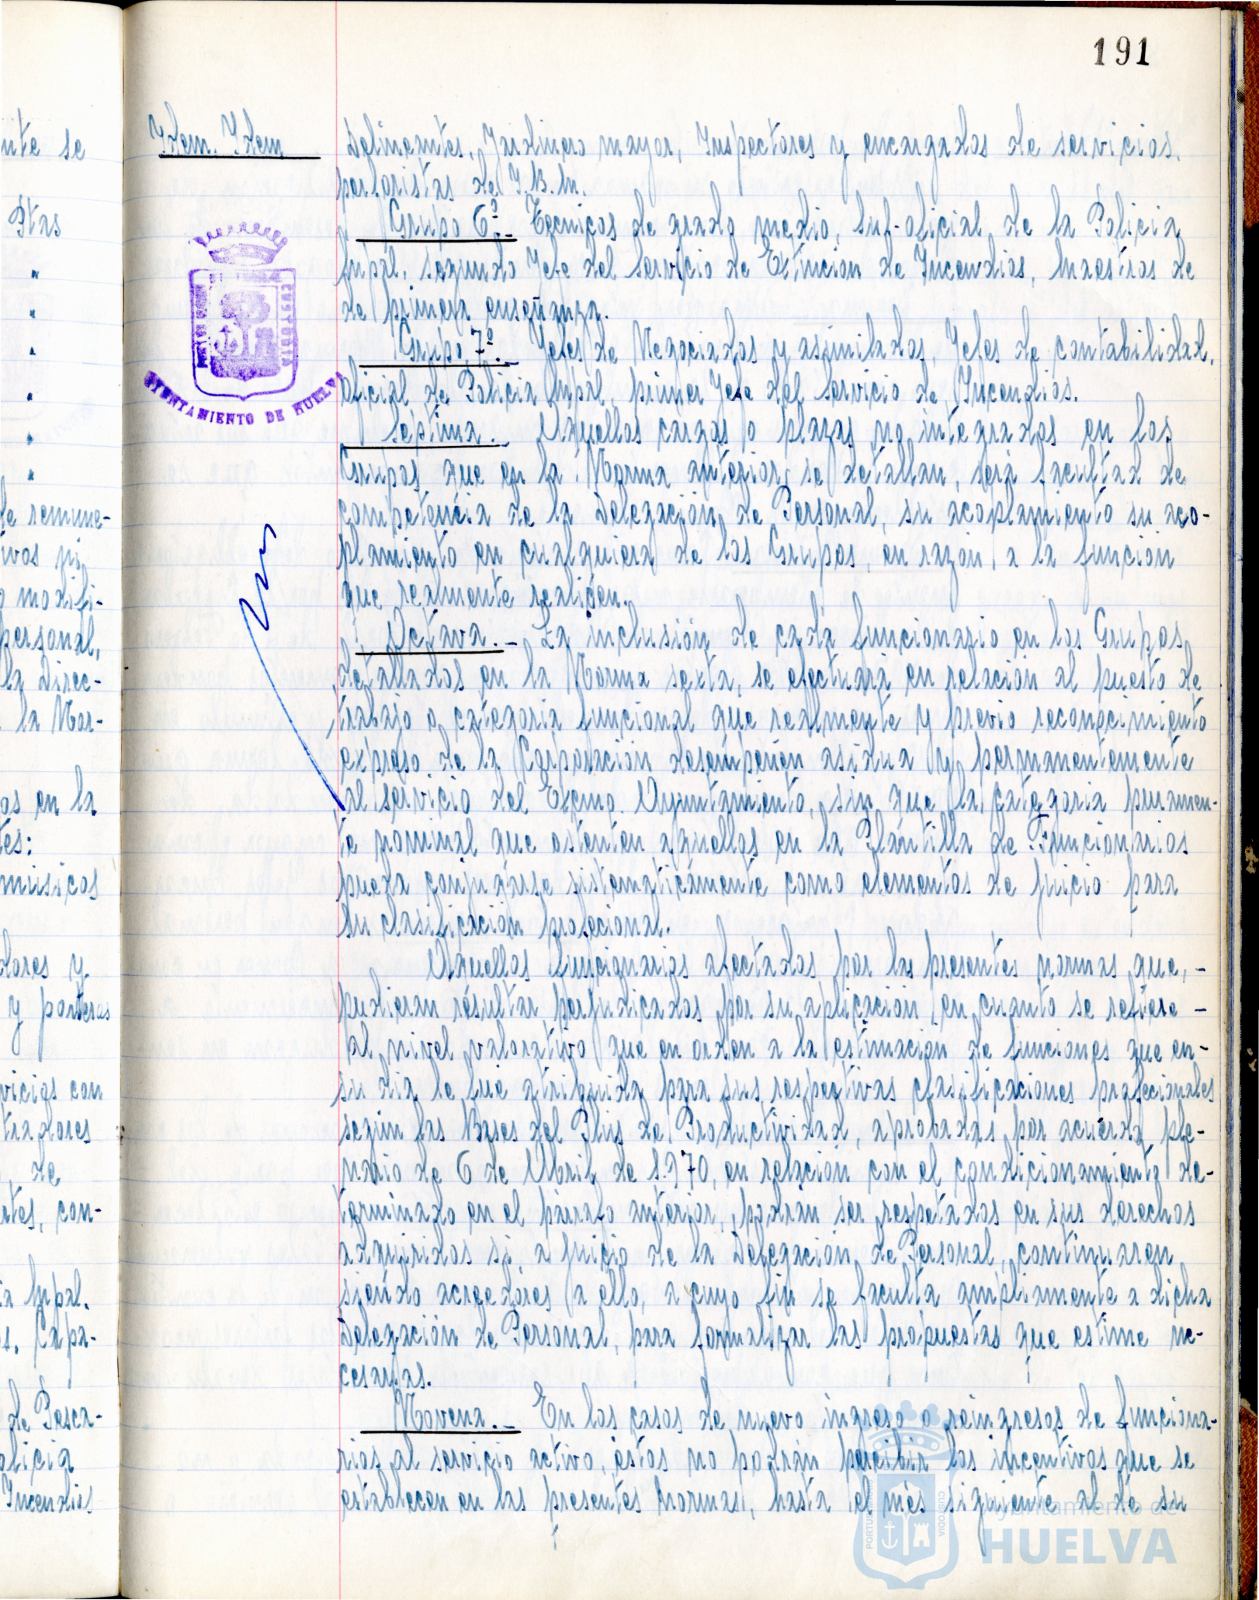 191
Idem. Idem
Delineantes, Jardinero mayor, Inspectores y encargados de servicios,
perforistas de I.B.M.
Grupo 6º.- Tecnicos de grado medio, sub-oficial de la Policia
Mpal. segundo Jefe del Servicio de Extincion de Incendios, Maestros de
de primera enseñanza.
Grupo 7º.- Jefes de Negociados y asimilados, Jefes de contabilidad,
oficial de Policia Mpal. primer Jefe del Servicio de Incendios.
Septima.- Aquellos cargos o plazas no integrados en los
Grupos que en la Norma anterior se detallan, será facultad de
competencia de la Delegación de Personal, su acoplamiento su aco-
plamiento en cualquiera de los Grupos, en razón, a la función
que realmente realicen.
Octava.- La inclusión de cada funcionario en los Grupos
detallados en la Norma sexta, se efectuará en relación al puesto de
trabajo o categoria funcional que realmente y previo reconocimiento
expreso de la Corporación desempeñen asidua y permanentemente
al servicio del Excmo. Ayuntamiento, sin que la categoria puramen-
te nominal que ostenten aquellos en la Plantilla de Funcionarios
pueda conjugarse sistematicamente como elementos de juicio para
su clasificación profecional.
Aquellos funcionarios afectados por las presentes normas que,-
pudieran resultar perjudicados por su aplicación en cuanto se refiere-
al nivel valorativo que en orden a la estimación de funciones que en-
su dia le fue atribuida para sus respectivas clasificaciones profecionales
según las Bases del Plus de Productividad, aprobadas por acuerdo ple-
nario de 6 de Abril de 1.970, en relación con el condicionamiento de-
terminado en el parrafo anterior, podrán ser respetados en sus derechos
adquiridos si, a juicio de la Delegación de Personal, continuaren
siendo acreedores a ello, a cuyo fin se faculta ampliamente a dicha
Delegación de Personal, para formalizar las propuestas que estime ne-
cesarias.
Novena.- En los casos de nuevo ingreso o reingresos de funciona-
rios al servicio activo, éstos no podrán percibir los incentivos que se
establecen en las presentes Normas, hasta el més siguiente al de su
AYUNTAMIENTO DE HUELVA
Ayuntamiento de
HUELVA
nte se
Ptas
"
"
"
"
"
"
de remune-
tivos ni
o modifi-
personal,
la Direc-
la Nor-
os en la
tes:
músicos
dores y
y porteros
vicios con
tradores
de
ntes, con-
ia Mpal.
s. Capa-
de Pesca-
olicia
Incendios